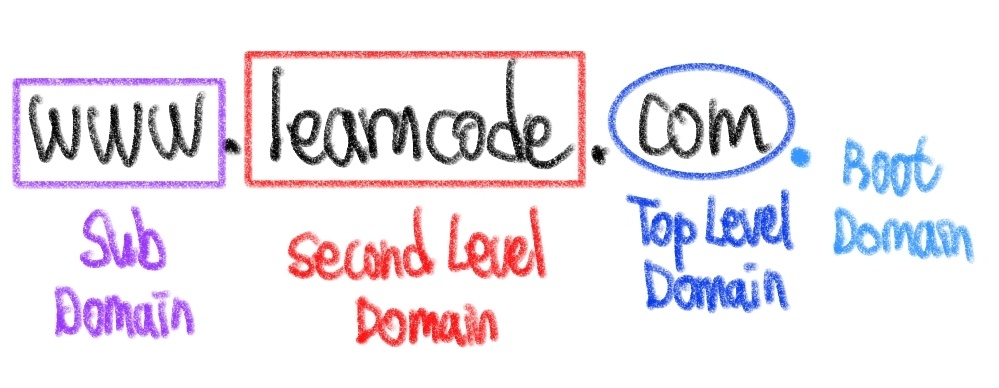 www.learncode.com.
Sub
Domain
Second Level
Domain
Top Level
Domain
Root
Domain